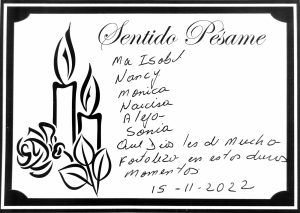 Sentido Pésame
Ma Isabel
Nancy
Monica
Narcisa
Alejo
Sonia
Que Dios les de Mucha
Fortaleza en estos duros
Momentos
15-11-2022